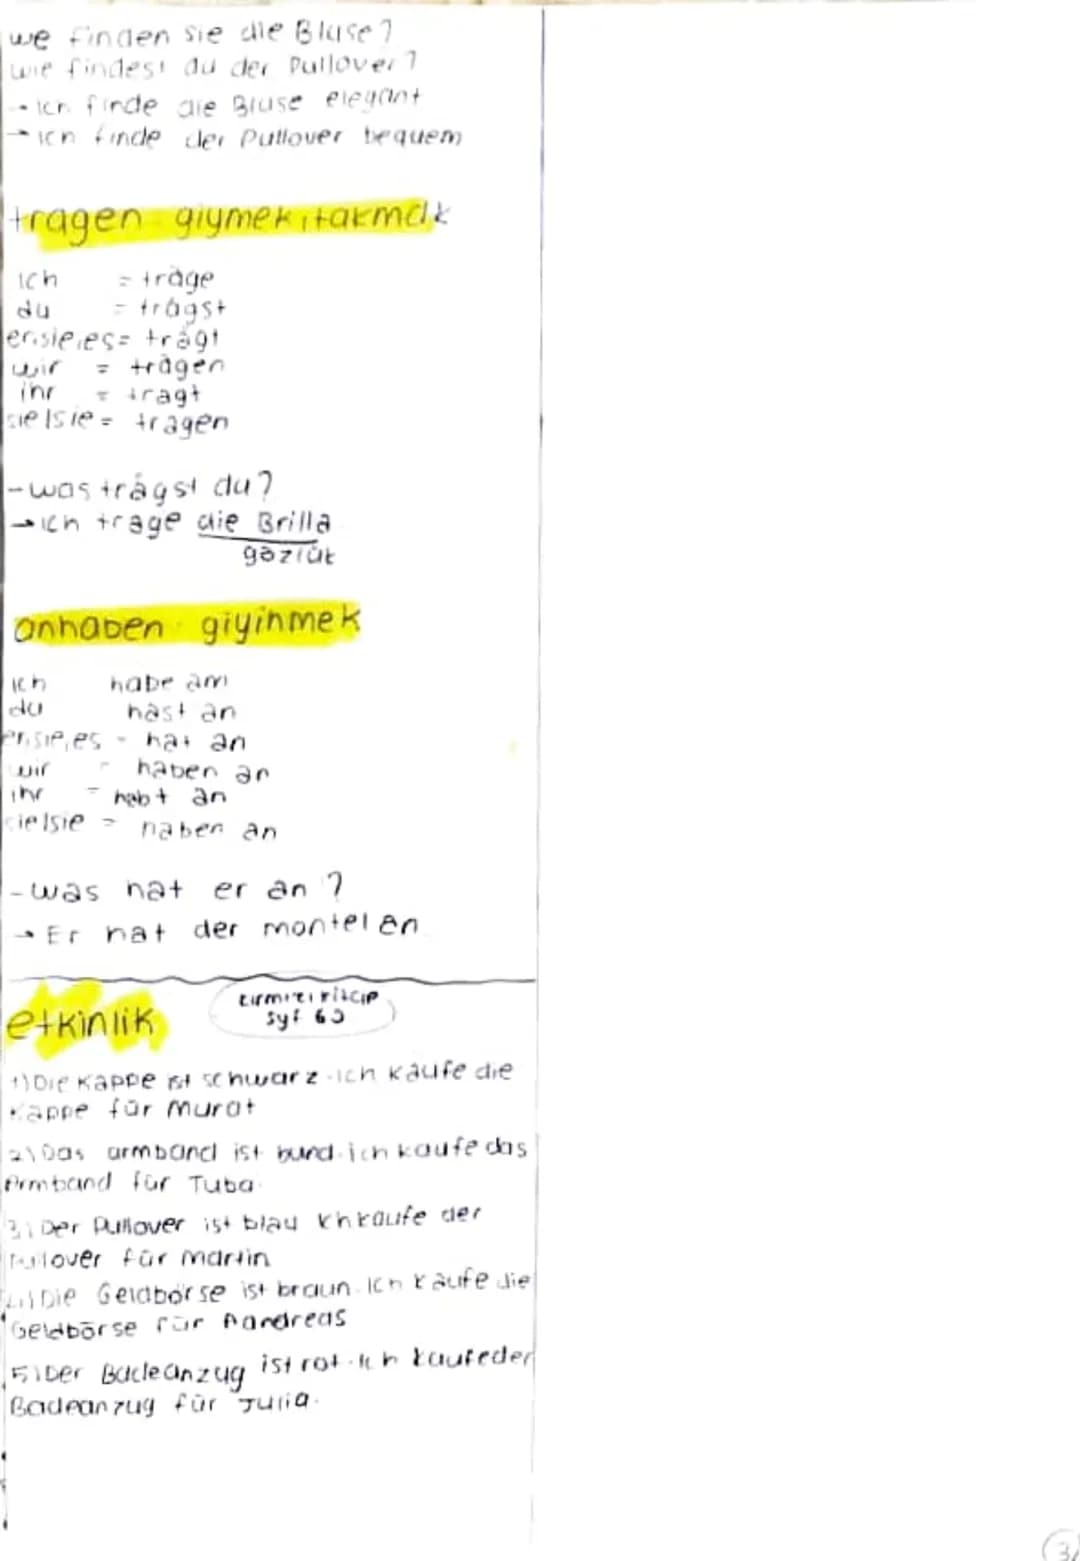 we finden sie die Bluse?
wie findest du der Pullover?
→ ich finde die Bluse elegant
→ ich finde der Pullover bequem
tragen giymek, takmak
ich = träge
du = trägst
er,sie,es= trägt
wir = trägen
ihr = tragt
sie/sie = tragen
- was trägst du?
→ ich trage die Brilla
gözlük
anhaben giyinmek
ich habe am
du hast an
er,sie,es - hat an
wir = haben an
ihr = habt an
sie/sie = haben an
- was hat er an?
→ Er hat der montel an
etkinlik
kırmızı kitap
syf 63
1) Die Kappe ist schwarz. ich kaufe die
Kappe für Murat
2) Das armband ist bund. ich kaufe das
Armband für Tuba.
3) Der Pullover ist blau ich kaufe der
Pullover für martin
4) Die Geldbörse ist braun. Ich kaufe die
Geldbörse für Aandreas
5) Der Badeanzug ist rot. Ich kaufe der
Badeanzug für Julia.
3